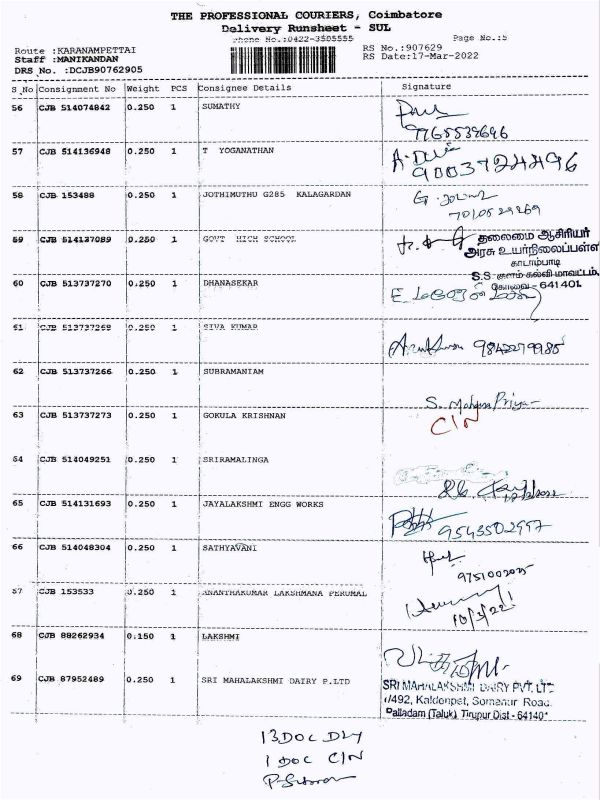 THE PROFESSIONAL COURIERS, Coimbatore
Delivery Runsheet - SUL
Phone No.:0422-3505555
Page No.:5
Route :KARANAMPETTAI
RS No.:907629
Staff :MANIKANDAN
RS Date:17-Mar-2022
DRS No. :DCJB90762905
S_No Consignment No Weight PCS Consignee Details Signature
56 CJB 514074842 0.250 1 SUMATHY
57 CJB 514136948 0.250 1 T YOGANATHAN
9003724496
58 CJB 153488 0.250 1 JOTHIMUTHU G285 KALAGARDAN
7010529269
59 CJB 514137089 0.250 1 GOVT HIGH SCHOOL
தலைமை ஆசிரியர்
அரசு உயர்நிலைப்பள்ளி
காடாம்பாடி
S.S. குளம் கல்வி மாவட்டம்,
கோவை - 641401.
60 CJB 513737270 0.250 1 DHANASEKAR
61 CJB 513737269 0.250 1 SIVA KUMAR
9842279985
62 CJB 513737266 0.250 1 SUBRAMANIAM
S. Mahima Priya
63 CJB 513737273 0.250 1 GOKULA KRISHNAN
C/N
64 CJB 514049251 0.250 1 SRIRAMALINGA
65 CJB 514131693 0.250 1 JAYALAKSHMI ENGG WORKS
9543502997
66 CJB 514048304 0.250 1 SATHYAVANI
9751002025
67 CJB 153533 0.250 1 ANANTHAKUMAR LAKSHMANA PERUMAL
10/3/22
68 CJB 88262934 0.150 1 LAKSHMI
69 CJB 87952489 0.250 1 SRI MAHALAKSHMI DAIRY P.LTD
SRI MAHALAKSHMI DAIRY PVT. LTD
/492, Kaldonpet, Somanur Road.
Palladam (Taluk), Tirupur Dist - 64140
13 DOC DLY
1 DOC C/N